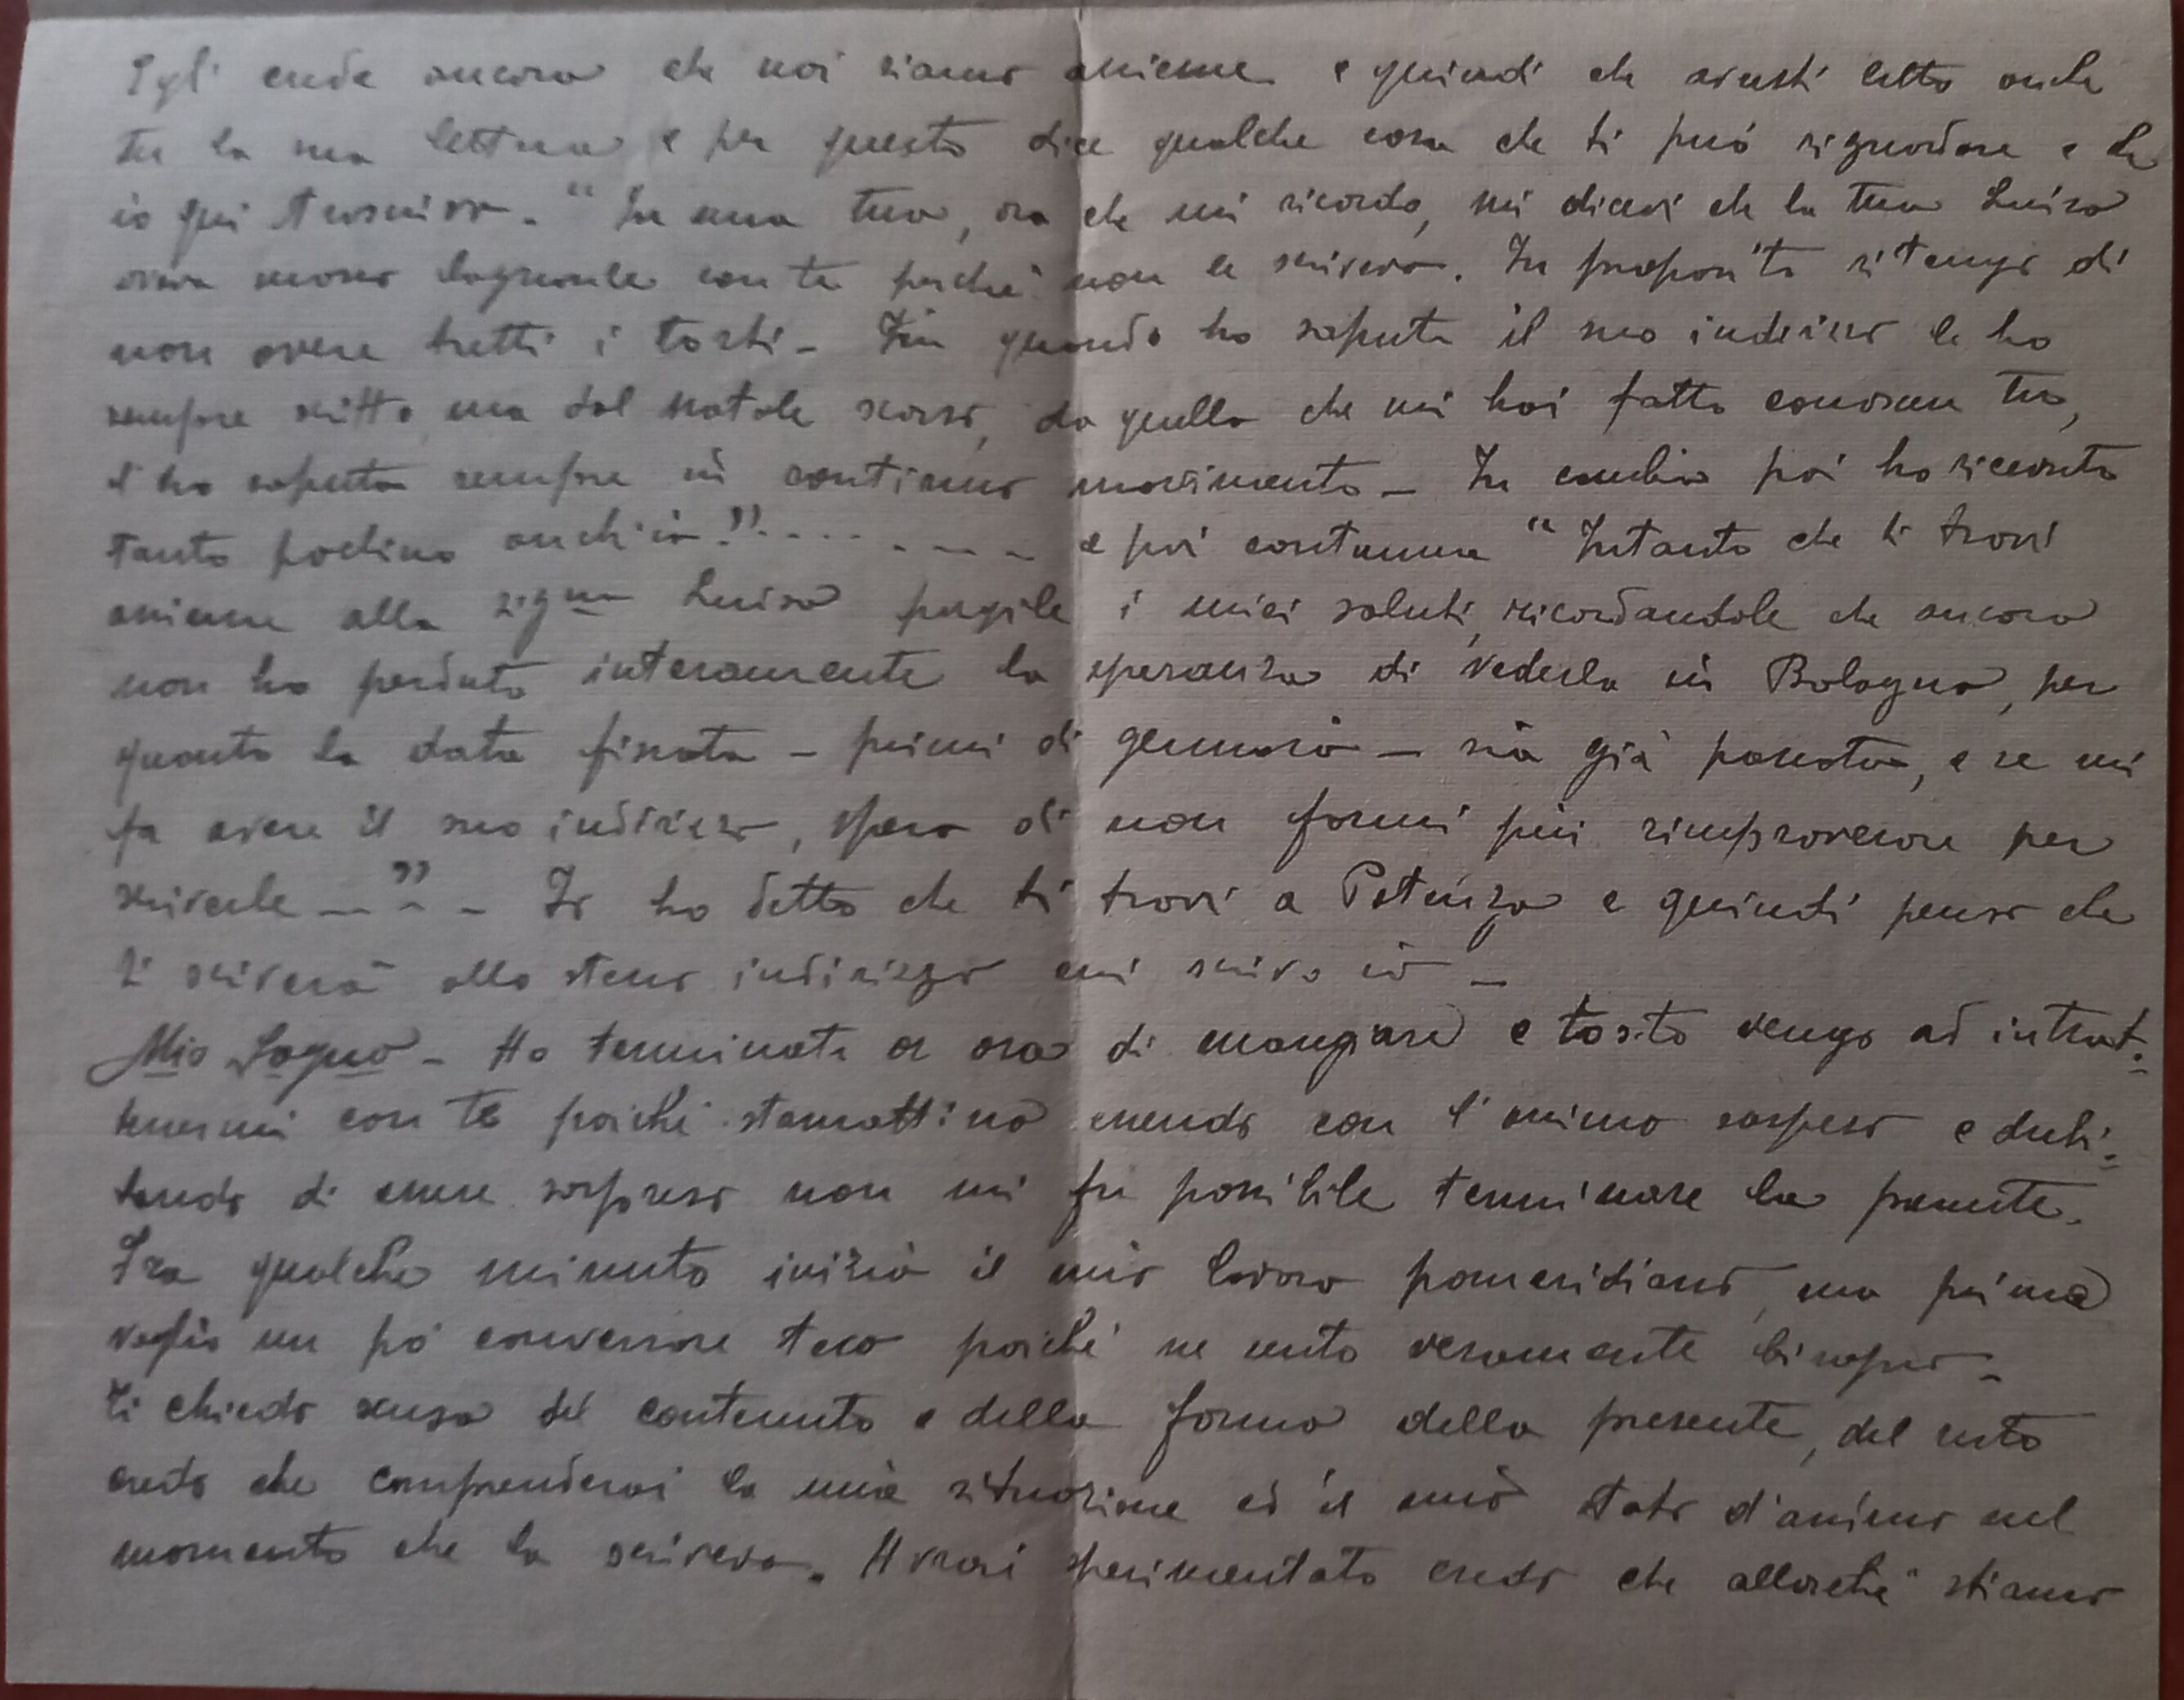 Egli crede ancora che noi siamo assieme e quindi che avresti letto anche
tu la sua lettera e per questo dice qualche cosa che ti può riguardare e che
io qui trascrivo. "In una tua, ora che mi ricordo, mi dicevi che la tua Luisa
aveva mosso lagnanze con te perché non le scrivevo. In proposito ritengo di
non avere tutti i torti - Fin quando ho saputo il suo indirizzo le ho
sempre scritto, ma dal natale scorso, da quello che mi hai fatto conoscere tu,
l'ho saputa sempre in continuo movimento - In cambio poi ho ricevuto
tanto pochino anch'io!" - - - - - - - - e poi continua "Intanto che ti trovi
assieme alla sig.na Luisa porgile i miei saluti, ricordandole che ancora
non ho perduto interamente la speranza di vederla in Bologna, per
quanto la data fissata - primi di gennaio - sia già passata, e se mi
fa avere il suo indirizzo, spero di non farmi più rimproverare per
scriverle - " - - Io ho detto che ti trovi a Potenza e quindi penso che
ti scriverà allo stesso indirizzo cui scrivo io -
Mio Sogno - Ho terminato or ora di mangiare e tosto vengo ad intrat=
tenermi con te poiché stamattina essendo con l'animo sospeso e dubi=
tando di essere sorpreso non mi fu possibile terminare la presente.
Fra qualche minuto inizio il mio lavoro pomeridiano, ma prima
voglio un pó conversare teco poiché ne sento veramente bisogno -
Ti chiedo scusa del contenuto e della forma della presente, del resto
credo che comprenderai la mia situazione ed il mio stato d'animo nel
momento che la scrivevo. Avrai sperimentato credo che allorché stiamo